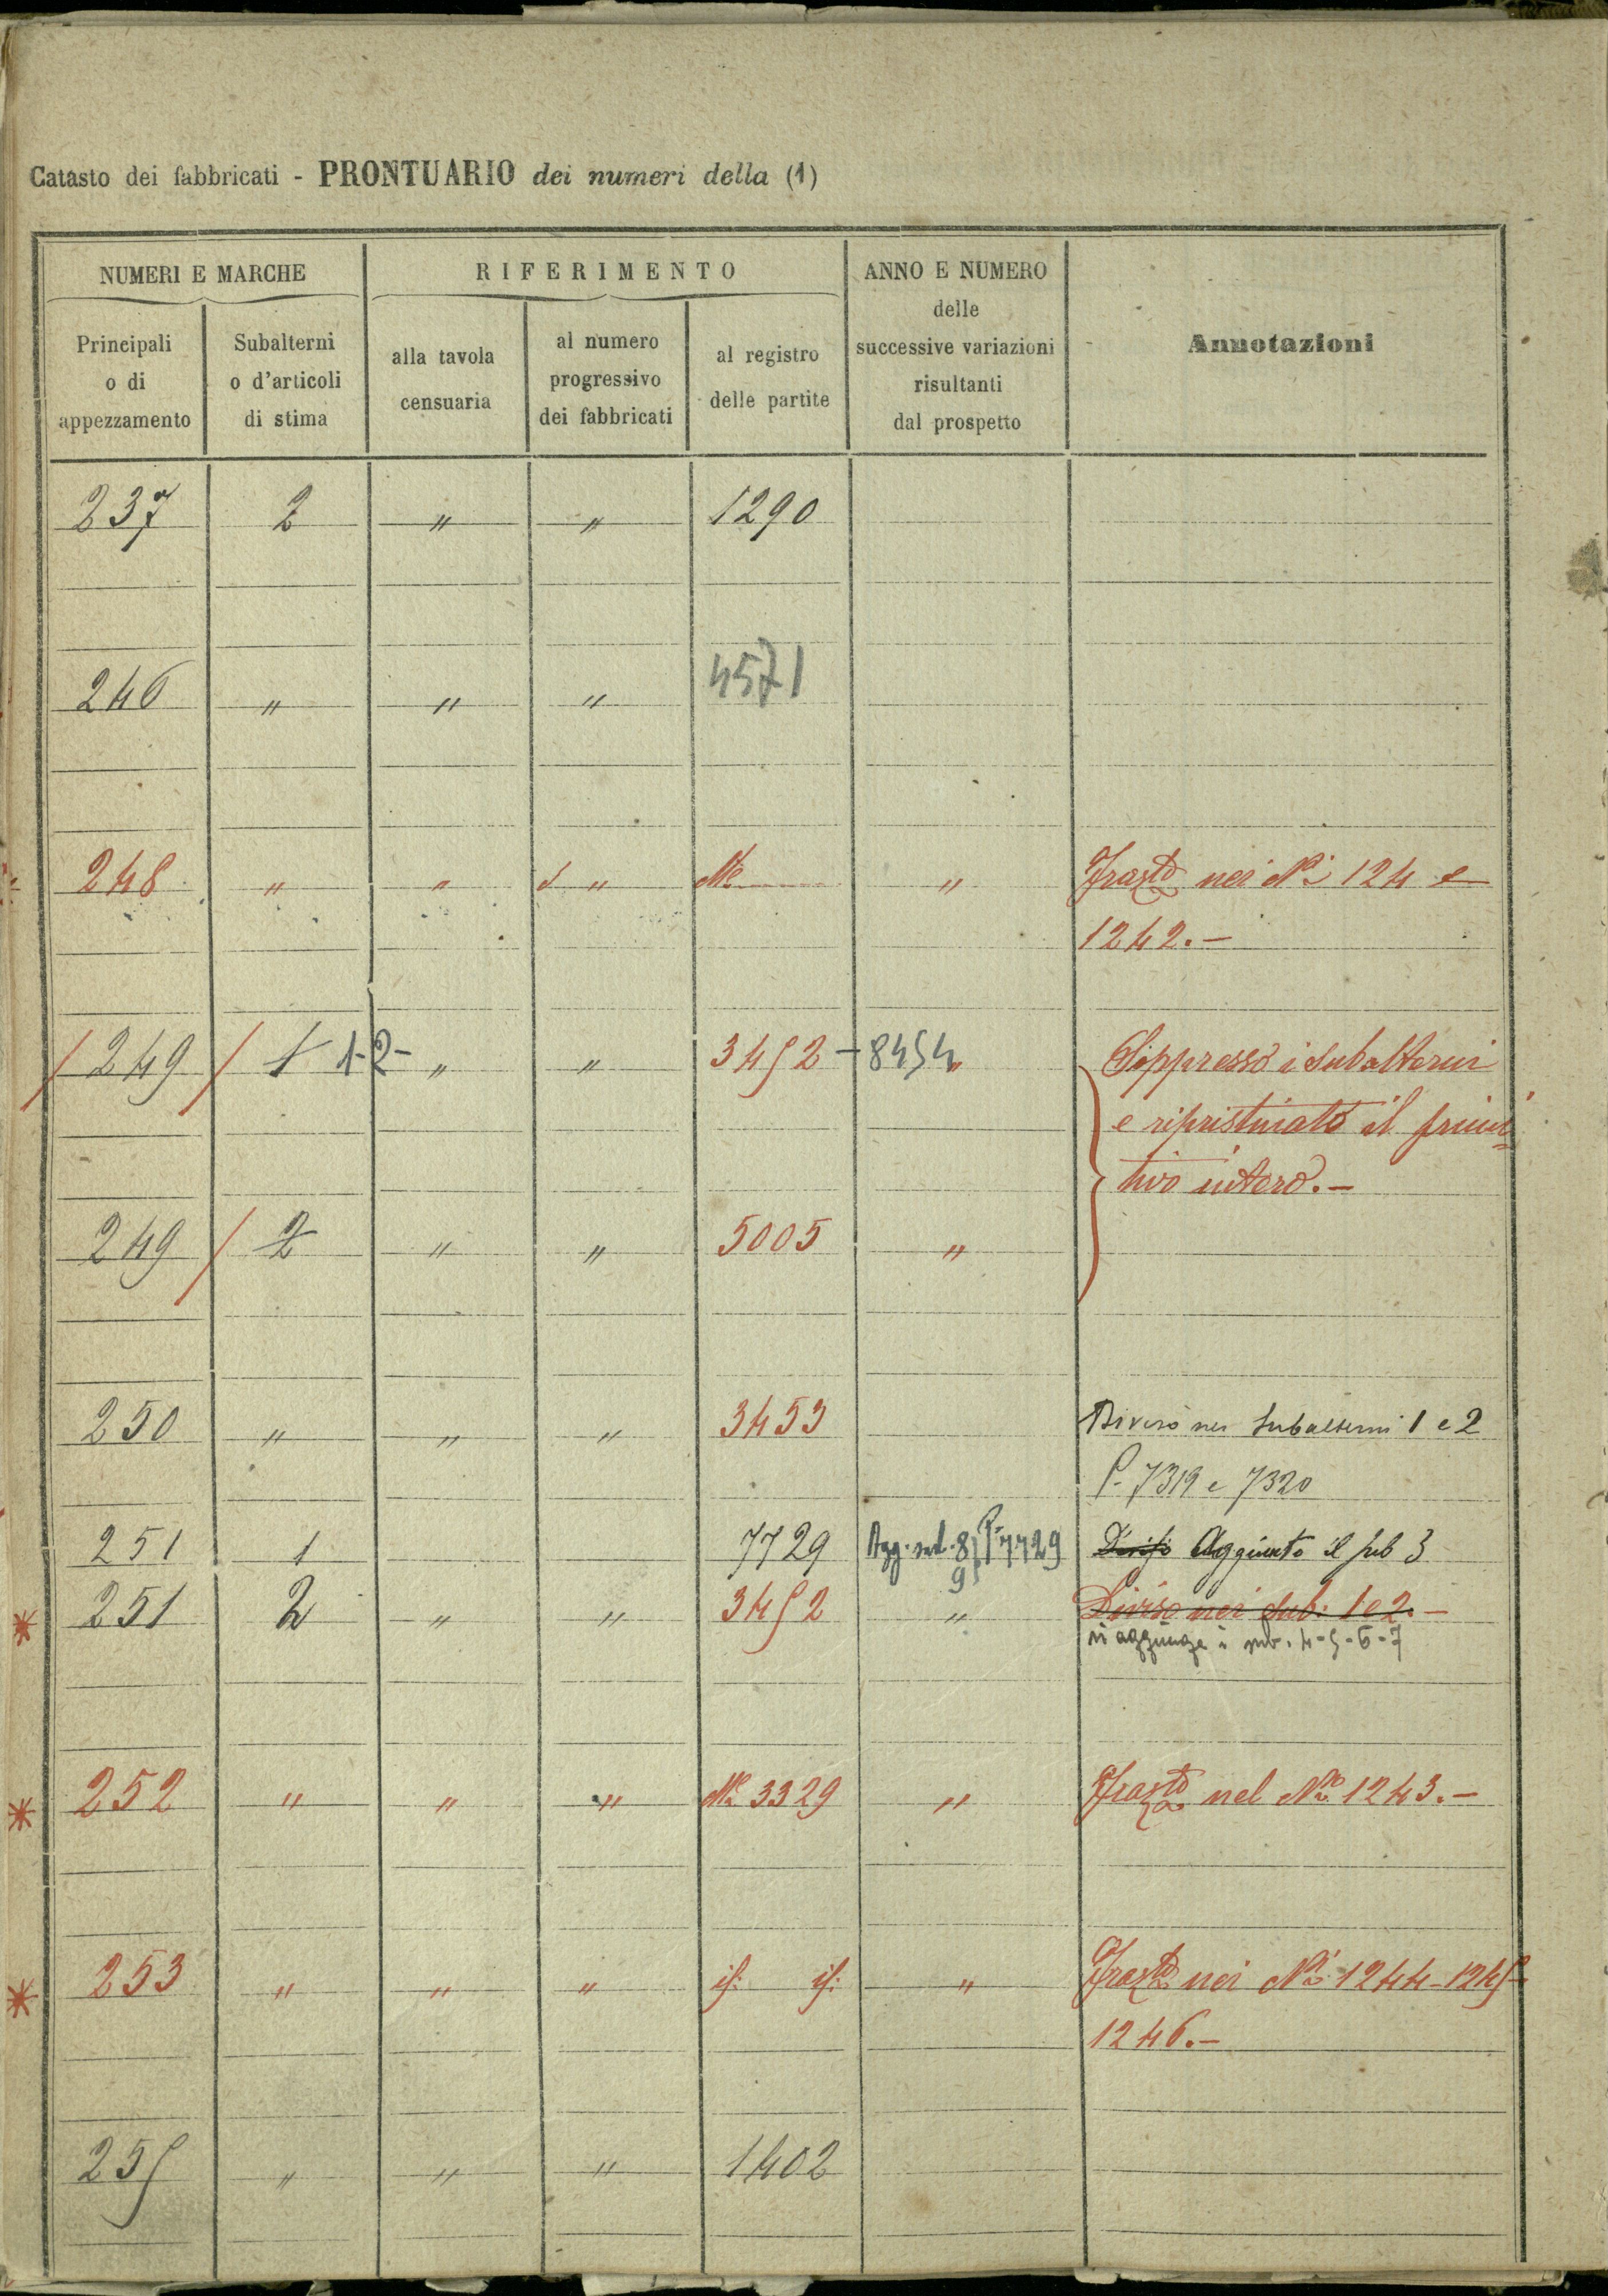 Catasto dei fabbricati - PRONTUARIO dei numeri della (1)
NUMERI E MARCHE
RIFERIMENTO
ANNO E NUMERO
delle
successive variazioni
risultanti
dal prospetto
Annotazioni
Principali
o di
appezzamento
Subalterni
o d'articoli
di stima
alla tavola
censuaria
al numero
progressivo
dei fabbricati
al registro
delle partite
237 2 " " 1290
246 " " " 4571
248 " " " " nei Ni 124 e
1242.-
249 1 1-2- " " 3452 - 8454 " Soppresso i subalterni
e ripristinato il primi
tivo intero.-
249 2 " " 5005 "
250 " " " 3453 Diviso nei Subalterni 1 e 2
P. 7319 e 7320
251 1 7729 Agg. sub. 8 P. 7729 Diviso Aggiunto il sub 3
9
251 2 " " 3452 " Diviso nei Sub. 1 e 2.-
si aggiunge i sub. 4-5-6-7
252 " " " 3329 " nel No 1243.-
253 " " " " nei Ni 1244-1245-
1246.-
255 " " " 1402